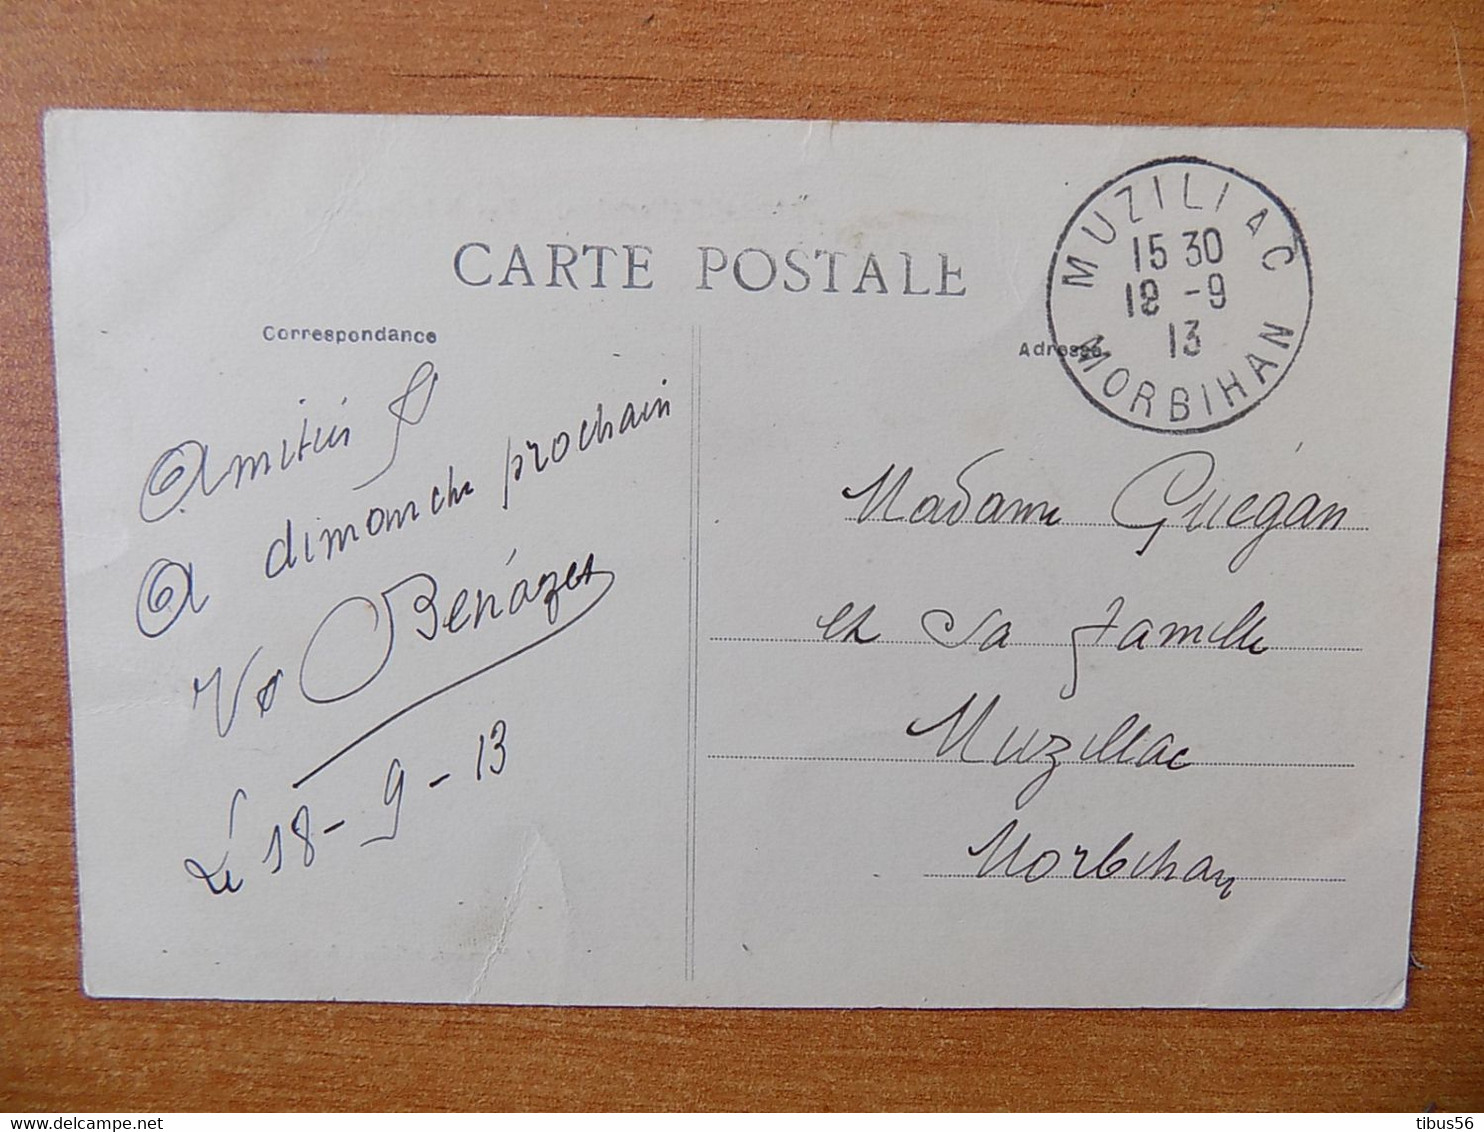 CARTE POSTALE
Correspondance
Amitiés
A dimanche prochain
Ve Benázet
Le 18-9-13
Adresse
MUZILLAC
15 30
18 -9
13
MORBIHAN
Madame Guégan
et sa famille
Muzillac
Morbihan
tibus56